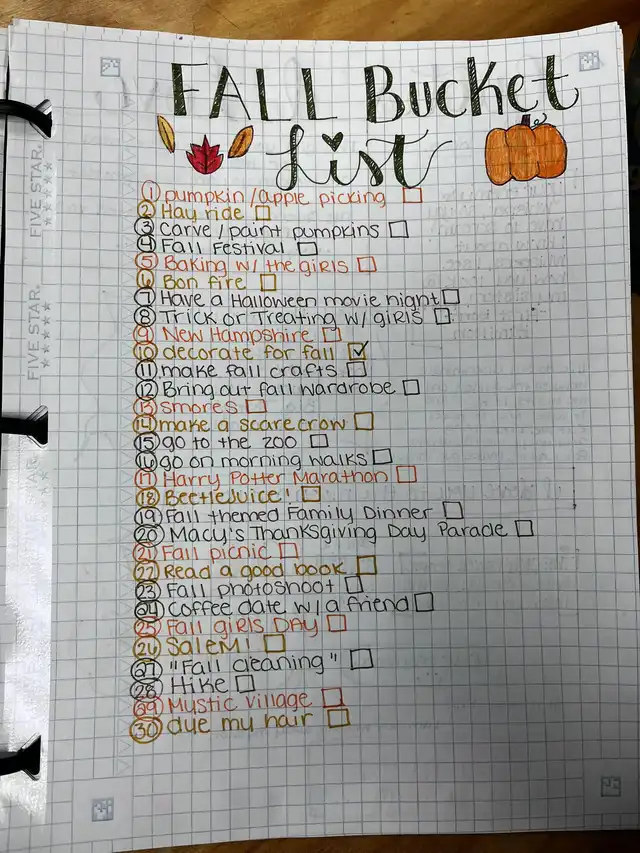 FALL Bucket
List
1 pumpkin/apple picking
2 Hay ride
3 carve/paint pumpkins
4 Fall Festival
5 Baking w/ the girls
6 Bon fire
7 Have a Halloween movie night
8 Trick or Treating w/ girls
9 New Hampshire
10 decorate for fall
11 make fall crafts
12 Bring out fall wardrobe
13 smores
14 make a scarecrow
15 go to the zoo
16 go on morning walks
17 Harry Potter Marathon
18 BeetleJuice!
19 Fall themed Family Dinner
20 Macy's Thanksgiving Day Parade
21 Fall picnic
22 Read a good book
23 Fall photoshoot
24 Coffee date w/ a friend
25 Fall girls DAY
26 Salem!
27 "Fall cleaning"
28 Hike
29 Mystic village
30 due my hair
FIVE STAR
FIVE STAR
FIVE STAR